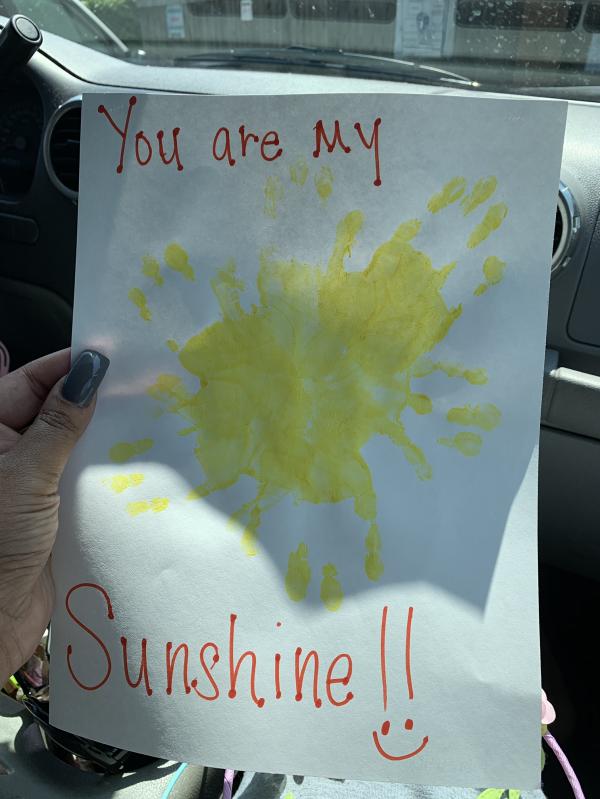 You are My
Sunshine!!